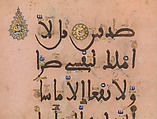 صٰدقين قل لا
املك لنفسى ضرّا
ولا نفعا الّا ما شا